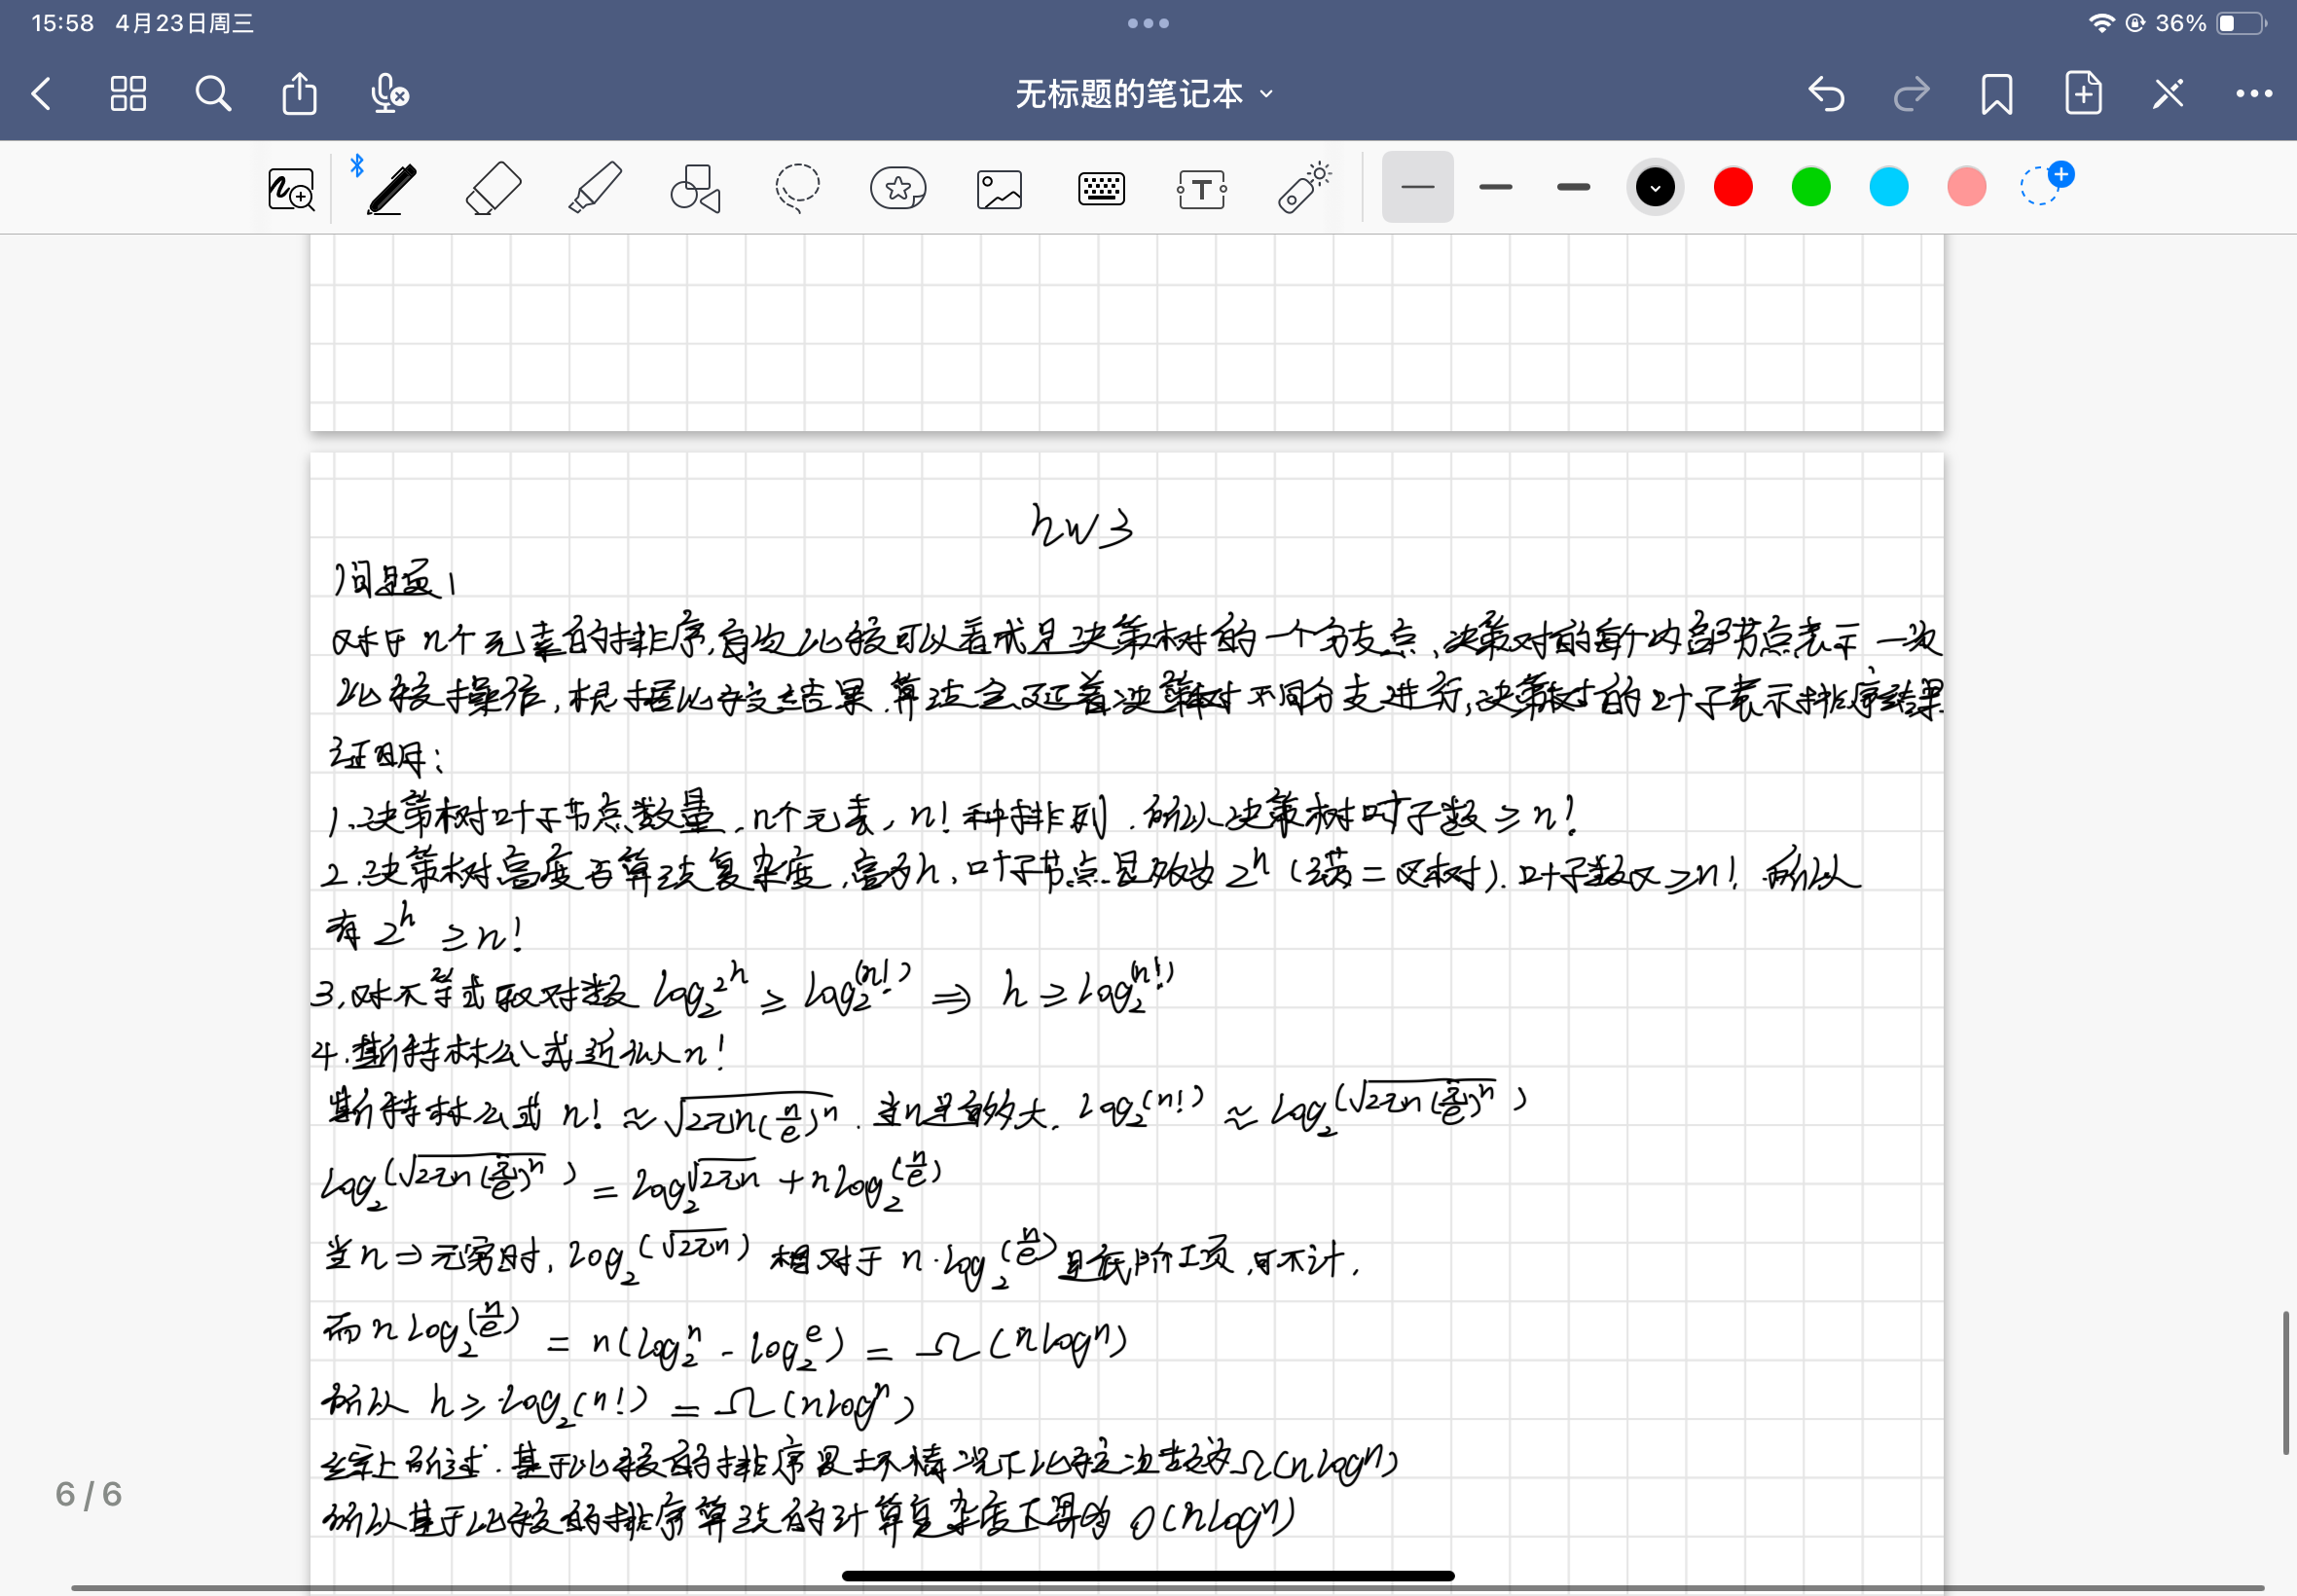 15:58 4月23日周三
36%
无标题的笔记本
hw3
问题1
对于n个元素的排序,每次比较可以看成是决策树的一个分支点,决策树的每个内部节点表示一次
比较操作,根据比较结果.算法会延着决策树不同分支进行,决策树的叶子表示排序结果
证明:
1.决策树叶子节点数量,n个元素,n!种排列.所以决策树叶子数≥n!
2.决策树高度与算法复杂度,高为h,叶子节点最多为2^h(满二叉树).叶子数又≥n!所以
有 2^h ≥n!
3.对不等式取对数 log₂2^h ≥ log₂(n!) ⇒ h≥log₂(n!)
4.斯特林公式近似n!
斯特林公式 n! ≈ √(2πn(n/e)^n).当n足够大. log₂(n!) ≈ log₂(√(2πn(n/e)^n))
log₂(√(2πn(n/e)^n)) = log₂√(2πn) + nlog₂(n/e)
当n⇒无穷时, log₂(√(2πn)) 相对于 n·log₂(n/e)是低阶项,可不计.
而nlog₂(n/e) = n(log₂n - log₂e) = Ω(nlogn)
所以 h≥log₂(n!) = Ω(nlogn)
综上所述.基于比较的排序最坏情况下比较次数为Ω(nlogn)
所以基于比较的排序算法的计算复杂度下界为 O(nlogn)
6 / 6